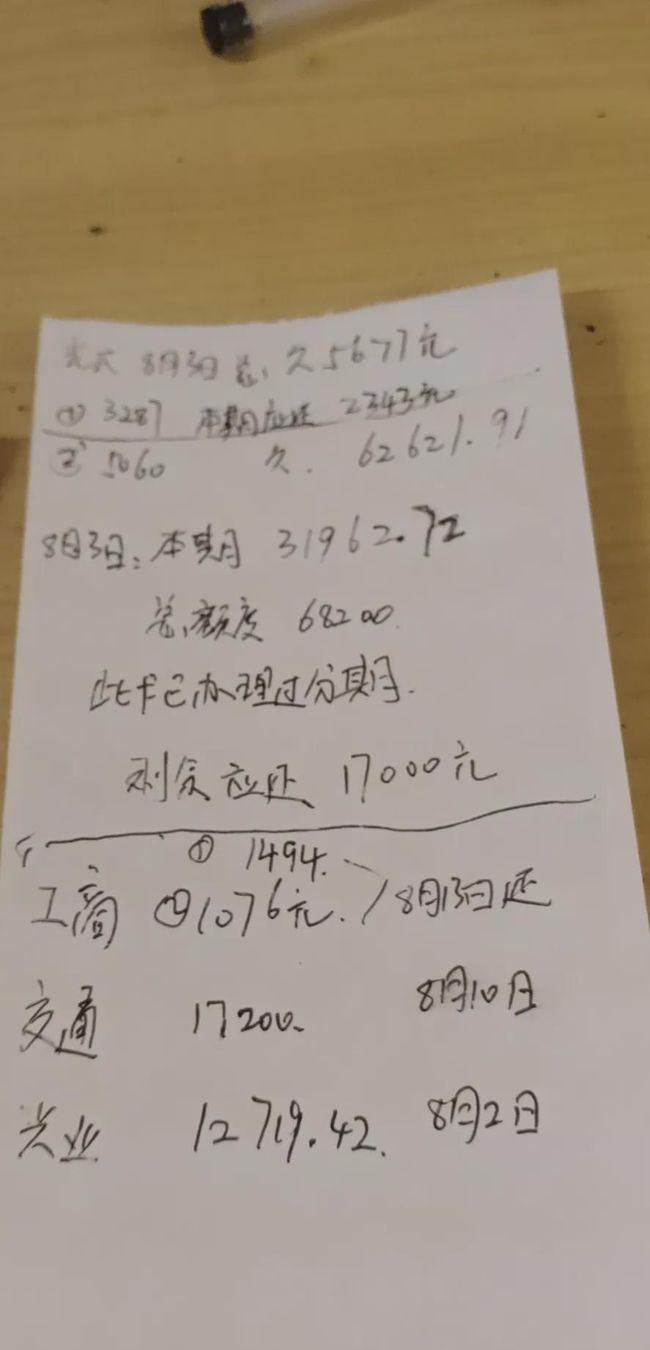 光大 8月3日 总, 欠 5677元
① 3287 本期应还 2343元
② 5060 欠. 62621.91
8月3日: 本期 31962.72
总额度 68200.
此卡已办理过分期.
剩余应还 17000元
① 1494.
工商 ②1076元. / 8月13日还
交通 17200. 8月10日
兴业 12719.42. 8月2日